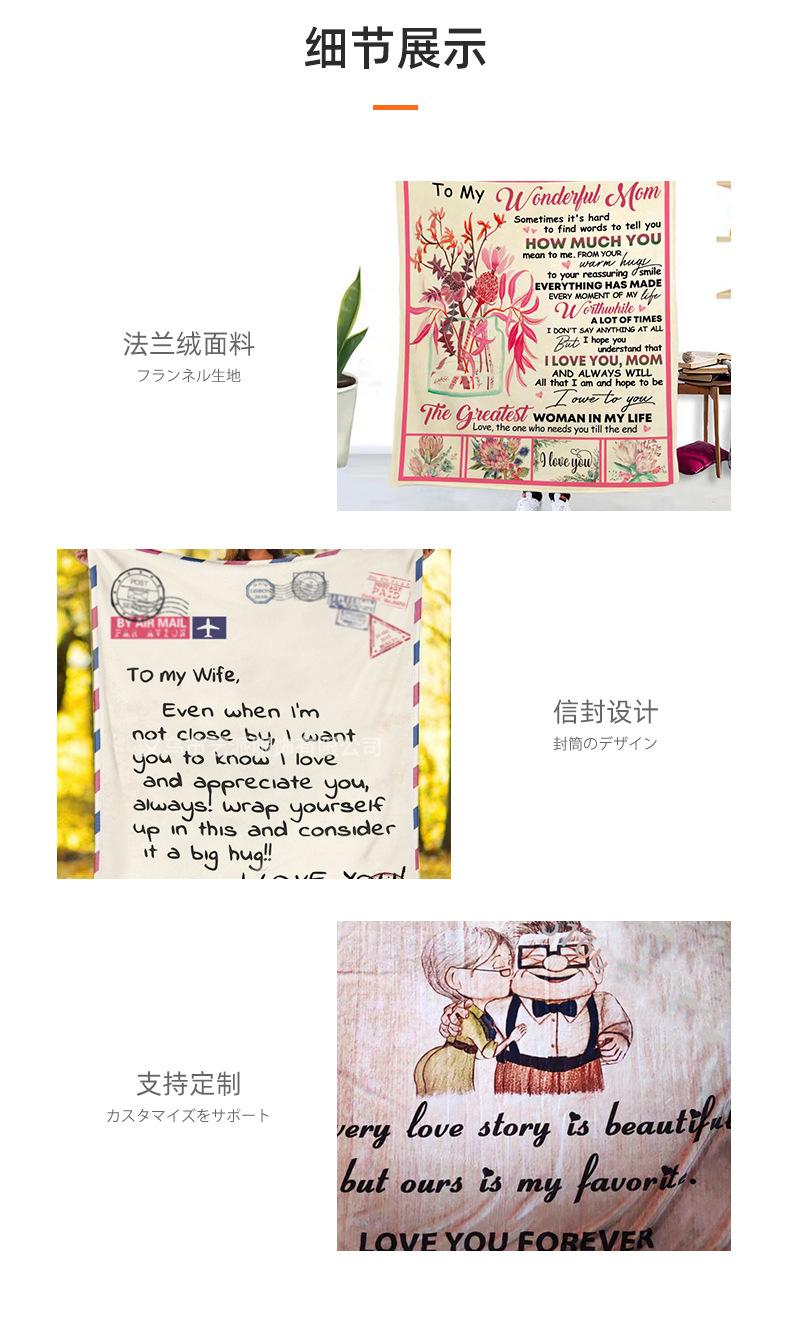 细节展示
To My Wonderful Mom
Sometimes it's hard
to find words to tell you
HOW MUCH YOU
mean to me. FROM YOUR
warm hugs
to your reassuring smile
EVERYTHING HAS MADE
EVERY MOMENT OF MY life
Worthwhile
A LOT OF TIMES
I DON'T SAY ANYTHING AT ALL
But I hope you
understand that
I LOVE YOU, MOM
AND ALWAYS WILL
All that I am and hope to be
I owe to you
The Greatest WOMAN IN MY LIFE
Love, the one who needs you till the end
I love you
法兰绒面料
フランネル生地
POST
BY AIR MAIL
PAR AVION
PAID
To my Wife,
Even when I'm
not close by, I want
you to know I love
and appreciate you,
always! Wrap yourself
up in this and consider
it a big hug!!
I LOVE YOU!
信封设计
封筒のデザイン
支持定制
カスタマイズをサポート
very love story is beautiful
but ours is my favorite.
LOVE YOU FOREVER